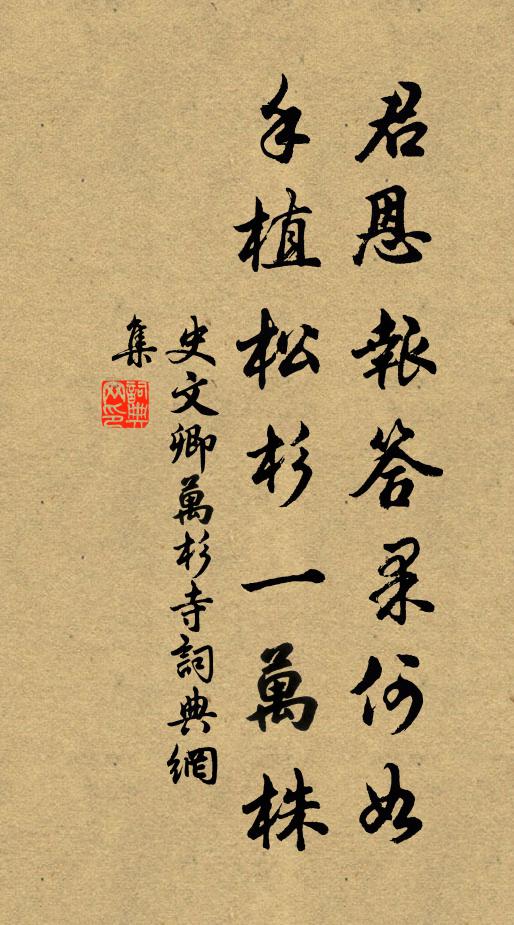 君恩報答果何如
手植松杉一萬株
史文卿萬杉寺詞典網
集
詞典網印